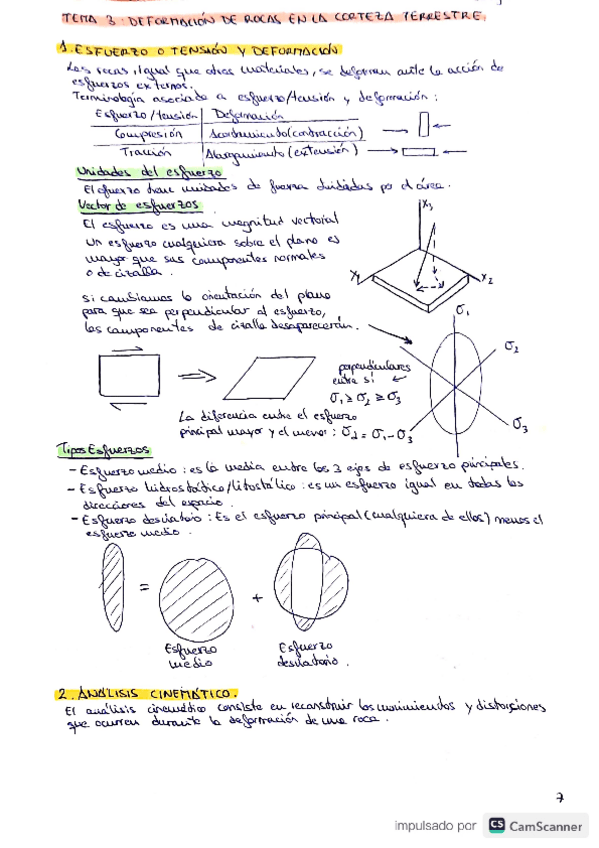 TEMA 3. DEFORMACIÓN DE ROCAS EN LA CORTEZA TERRESTRE.
1. ESFUERZO O TENSIÓN Y DEFORMACIÓN
Las rocas, igual que otros materiales, se deforman ante la acción de
esfuerzos externos.
Terminología asociada a esfuerzo/tensión y deformación:
Esfuerzo/tensión Deformación
Compresión Acortamiento (contracción)
Tracción Alargamiento (extensión)
Unidades del esfuerzo
El esfuerzo tiene unidades de fuerza divididas por el área.
Vector de esfuerzos
El esfuerzo es una magnitud vectorial
Un esfuerzo cualquiera sobre el plano es
mayor que sus componentes normales
o de cizalla.
X3
X1
X2
Si cambiamos la orientación del plano
para que sea perpendicular al esfuerzo,
las componentes de cizalla desaparecerán.
σ1
σ2
σ3
perpendiculares
entre sí
σ1 ≥ σ2 ≥ σ3
La diferencia entre el esfuerzo
principal mayor y el menor: σd = σ1 - σ3
Tipos Esfuerzos
- Esfuerzo medio: es la media entre los 3 ejes de esfuerzo principales.
- Esfuerzo hidrostático/litostático: es un esfuerzo igual en todas las
direcciones del espacio.
- Esfuerzo desviatorio: Es el esfuerzo principal (cualquiera de ellos) menos el
esfuerzo medio.
= +
Esfuerzo
medio
Esfuerzo
desviatorio.
2. ANÁLISIS CINEMÁTICO.
El análisis cinemático consiste en reconstruir los movimientos y distorsiones
que ocurren durante la deformación de una roca.
7
impulsado por CS CamScanner